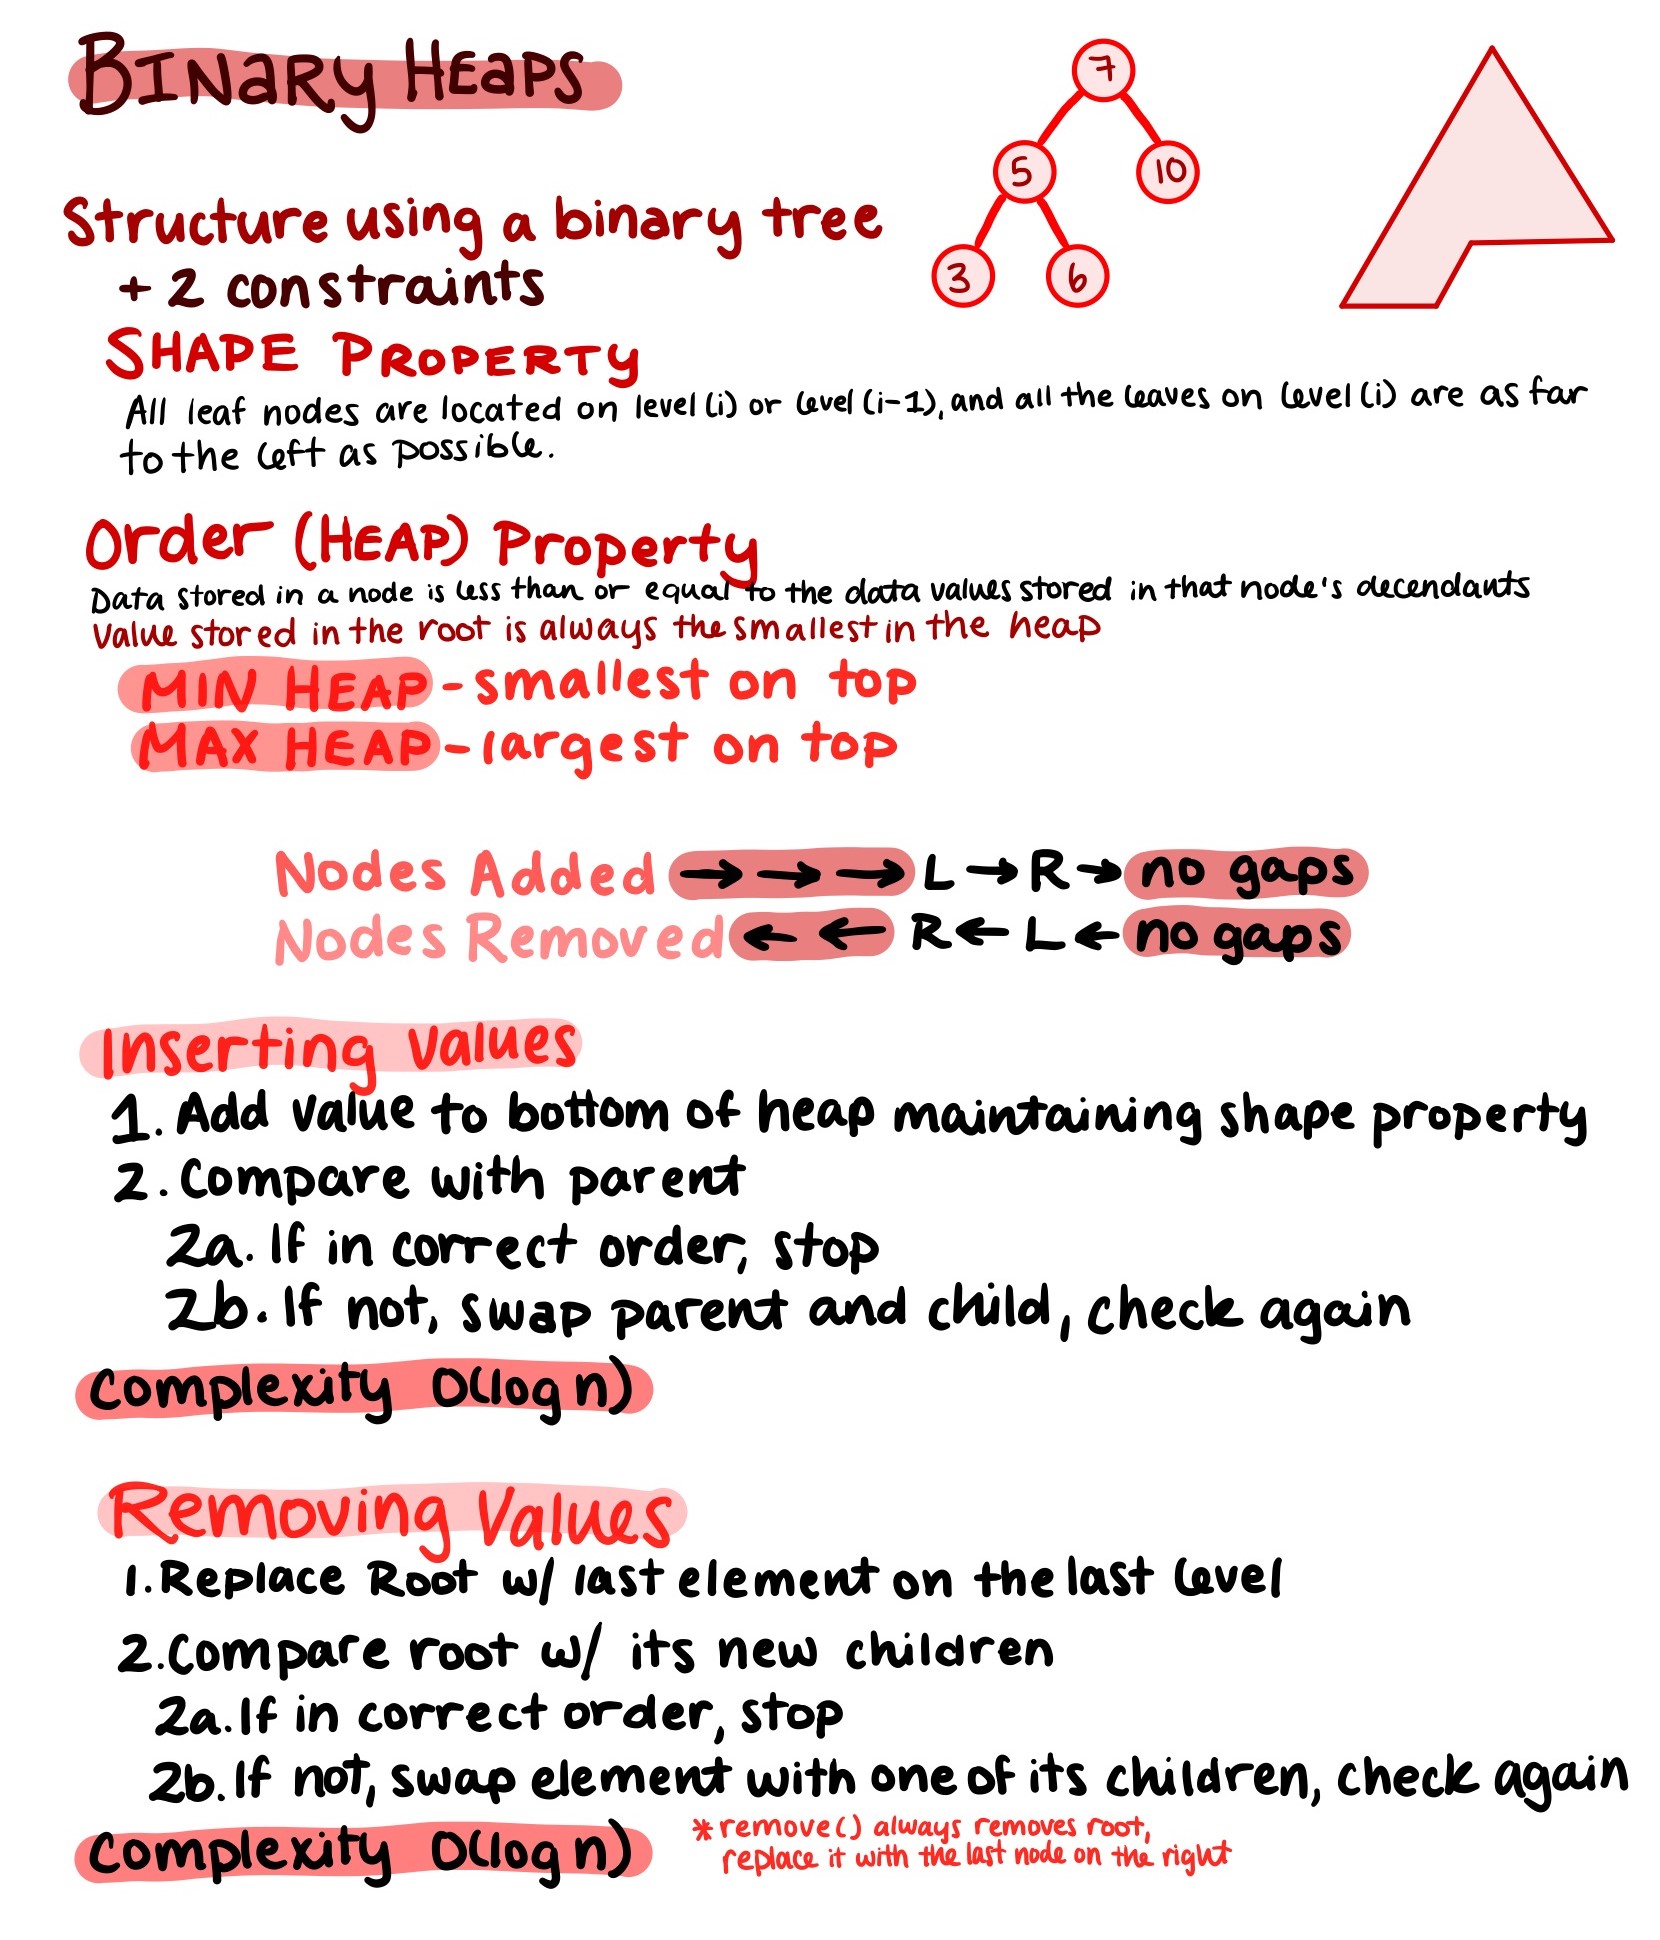 BINARY HEAPS
7
5
10
3
6
Structure using a binary tree
+ 2 constraints
SHAPE PROPERTY
All leaf nodes are located on level (i) or level (i-1), and all the leaves on level (i) are as far
to the left as possible.
Order (HEAP) Property
Data stored in a node is less than or equal to the data values stored in that node's decendants
Value stored in the root is always the smallest in the heap
MIN HEAP - smallest on top
MAX HEAP - largest on top
Nodes Added → → → L → R → no gaps
Nodes Removed ← ← R ← L ← no gaps
Inserting Values
1. Add value to bottom of heap maintaining shape property
2. Compare with parent
2a. If in correct order, stop
2b. If not, swap parent and child, check again
Complexity O(log n)
Removing Values
1. Replace Root w/ last element on the last level
2. Compare root w/ its new children
2a. If in correct order, stop
2b. If not, swap element with one of its children, check again
Complexity O(log n)
* remove() always removes root,
replace it with the last node on the right